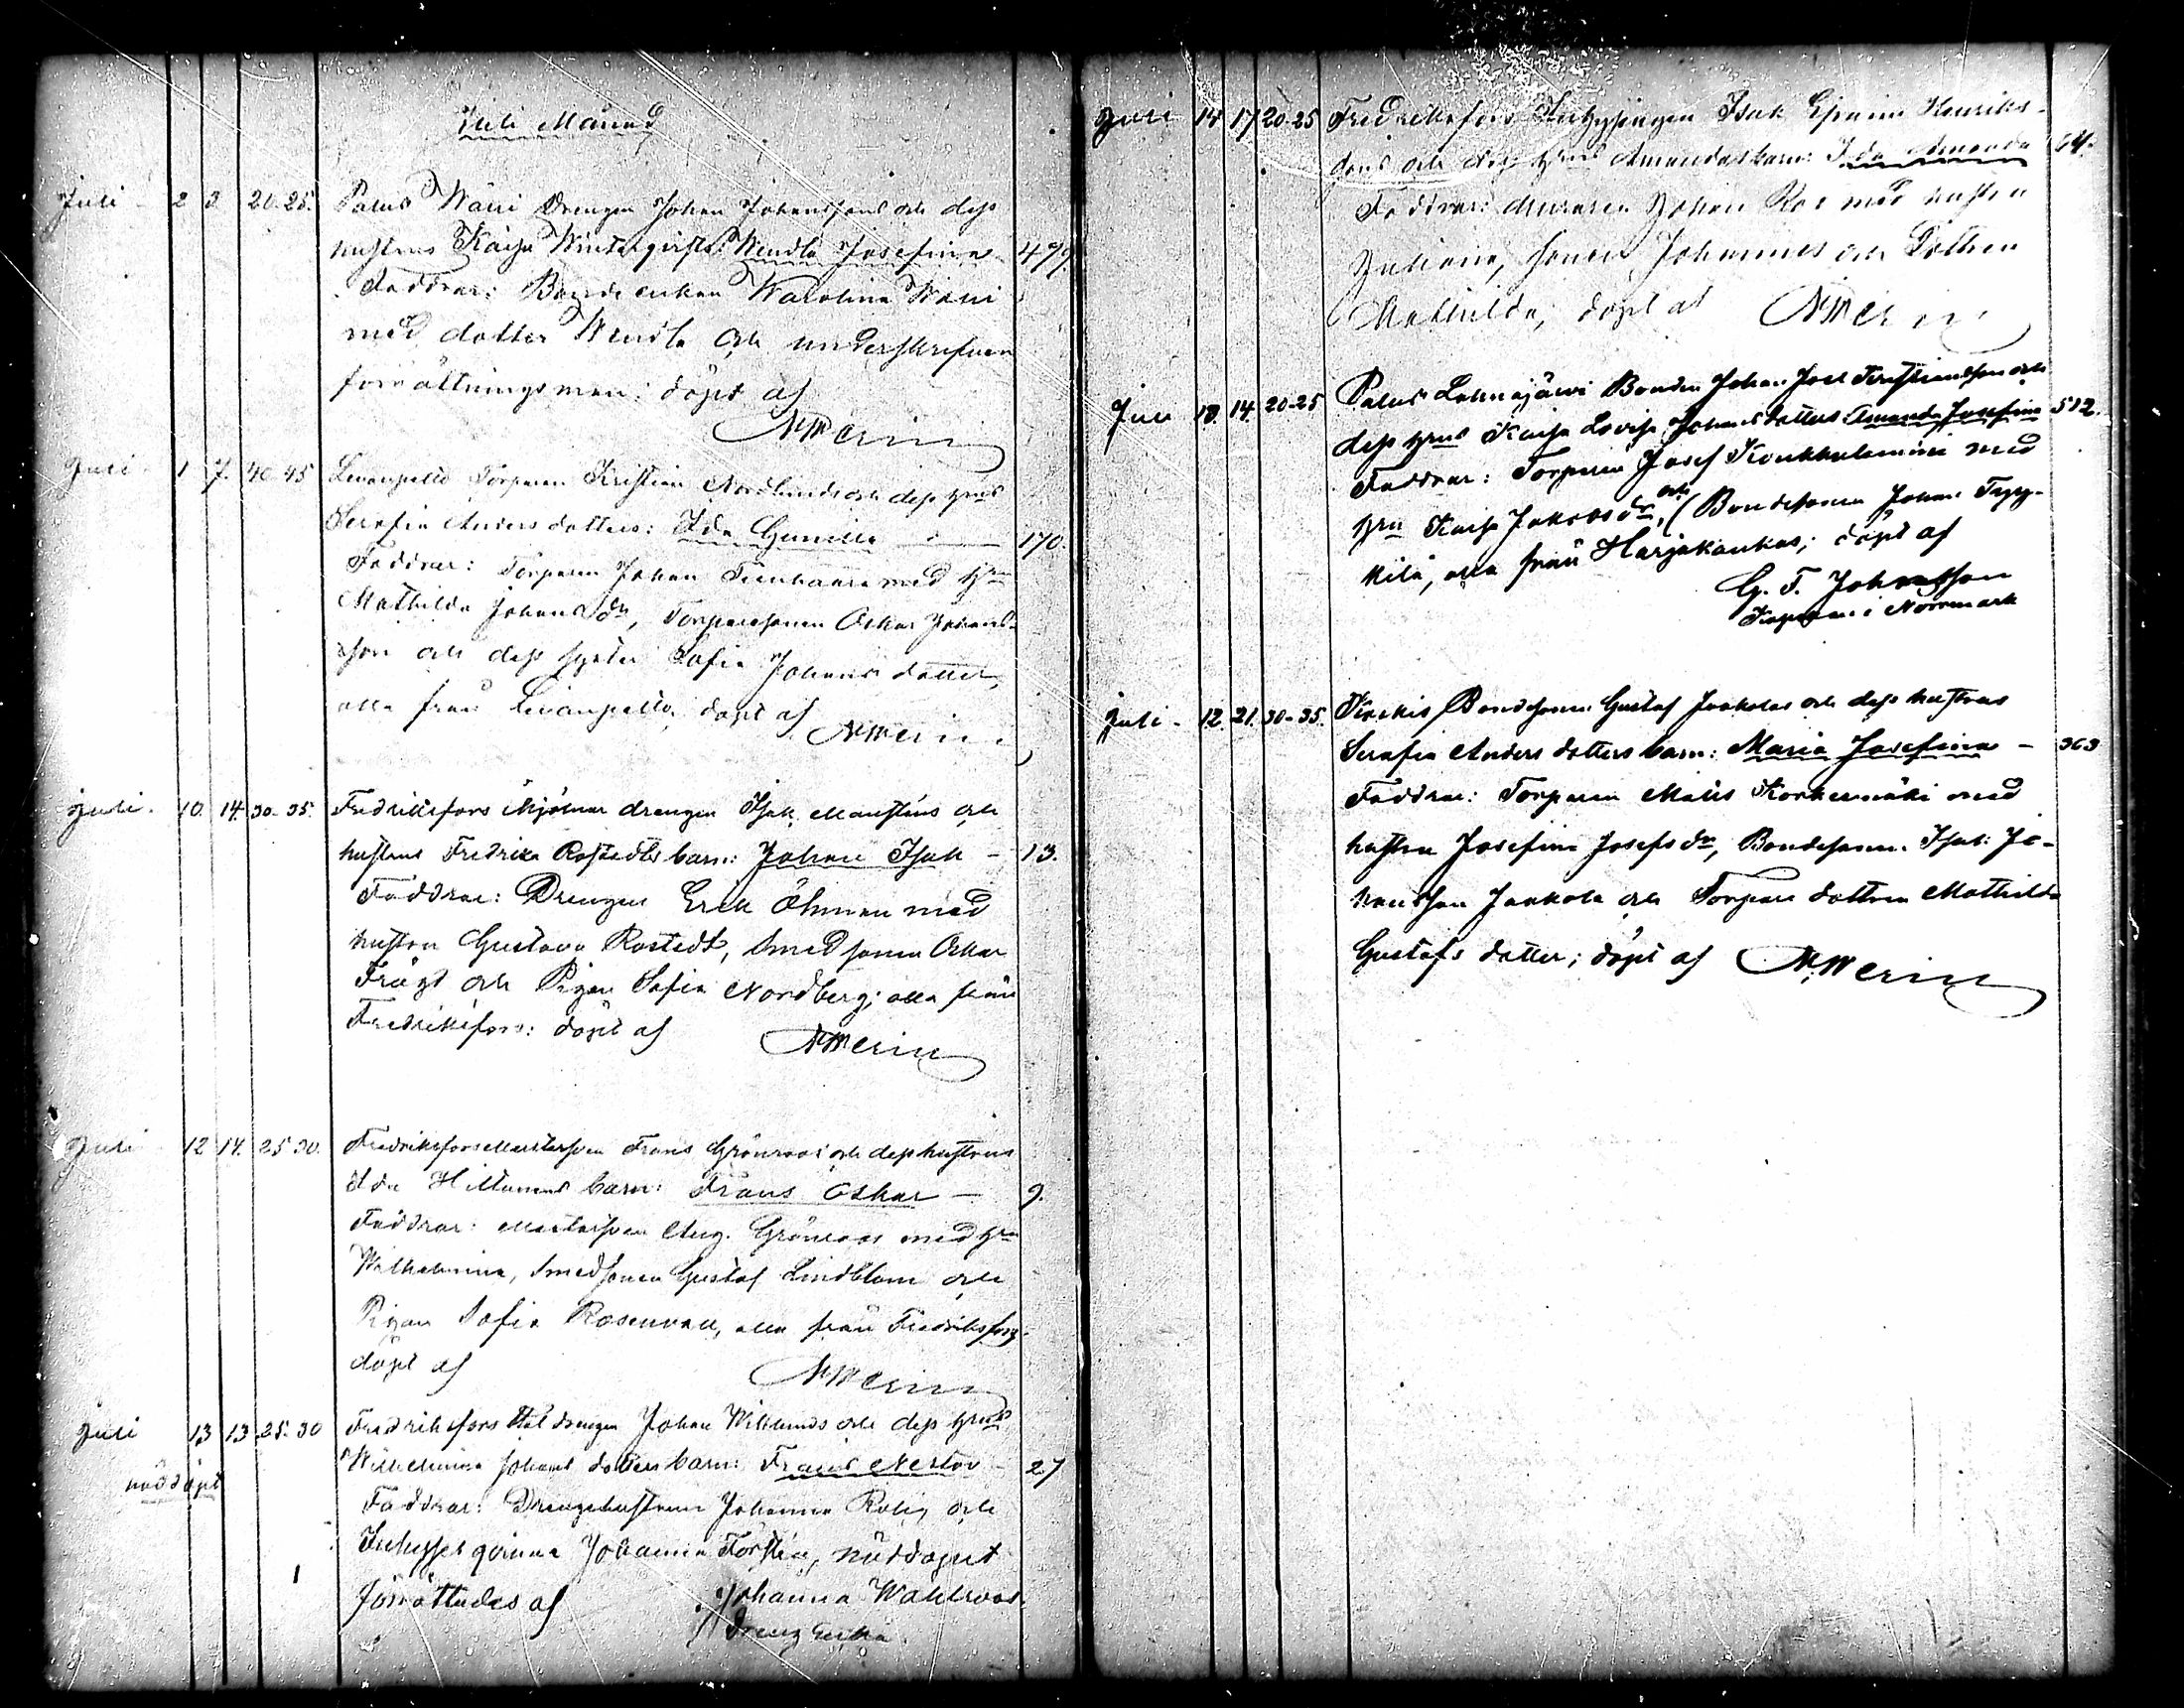 Juli Månad
Juli - 2 3 20-25. Palus Wäni Drengen Johan Johanssons och dess
hustrus Kaisa Wintergists: Wendla Josefina 479.
Faddrar: Bonde enkan Karolina Wäni
med dotter Wendla och underskrifven
förrättningsman: döpt af
NWerin
Juli - 1 7. 40-45 Levanpelto Torparen Kristian Nordlunds och dess hrus
Serafia Anders dotters: Ida Gunilla 170.
Faddrar: Torparen Johan med hru
Mathilda Johans dr, Torparesonen Oskar Johans-
son och dess syster Sofia Johans dotter,
alla från Levanpelto, döpt af NWerin
Juli. 10. 14. 30-35. Fredriksfors Mjölnar drengen Isak Manstens och
hustrus Fredrika Rostedts barn: Johan Isak - 13.
Faddrar: Drengen Erik Öhman med
hustru Gustava Rostedt, Smedsonen Oskar
och Pigan Sofia Nordberg; alla från
Fredriksfors: döpt af NWerin
Juli 12 14. 25-30. Fredriksfors Mästersven Frans Grönroos och dess hustrus
Ida barn: Frans Oskar - 9.
Faddrar: Mästersven Aug. Grönroos med hru
Wilhelmina, Smedsonen Gustaf Lindblom och
Pigan Sofia Rosenvall, alla från Fredriksfors.
döpt af NWerin
Juli 13 13 25-30 Fredriksfors drengen Johan Wiklunds och dess hrus
nöddöpt Wilhelmina Johans dotters barn: Frans Nestor - 27
Faddrar: Drengehustrun Johanna och
Johanna nöddopet
förrättades af Johanna Wahlroos
Dreng Enka.
Juli 14 17 20-25 Fredriksfors Isak Henriks-
sons och dess hrus Amandas barn: Ida Amanda 64.
Faddrar: Muraren Johan Ros med hustru
Juliana, sonen Johannes och Dottren
Mathilda, döpt af NWerin
Juli 10. 14. 20-25 Palus Lahnajärvi Bonden Johan Joel Kristianssons och
dess hrus Kaisa Lovisa Johans dotters Amanda Josefina 512.
Faddrar: Torparen Josef med
hru Kaisa Jakobsdr, och (Bondesonen Johan Tyy-
kilä, alla från Harjakankas; döpt af
G. F. Johansson
Kaplan i Norrmark
Juli - 12. 21. 30-35. Bondesonen Gustaf Jaakolas och dess hustrus
Serafia Anders dotters barn: Maria Josefina - 363
Faddrar: Torparen Matts Korkeemäki med
hustru Josefina Josefs dr, Bondesonen Isak Jo-
hansson Jaakola och Torpare dottren Mathilda
Gustafs dotter; döpt af NWerin